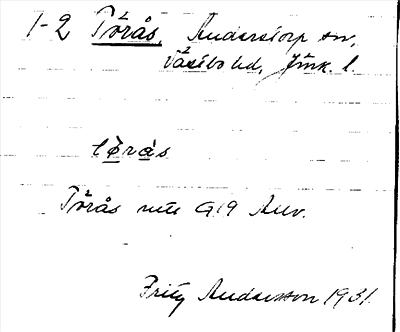 1-2 Törås, Anderstorp sn,
Västbo hd, Jönk. l.
tørås
Törås mtl G19 Auv.
Fritz Andersson 1931.